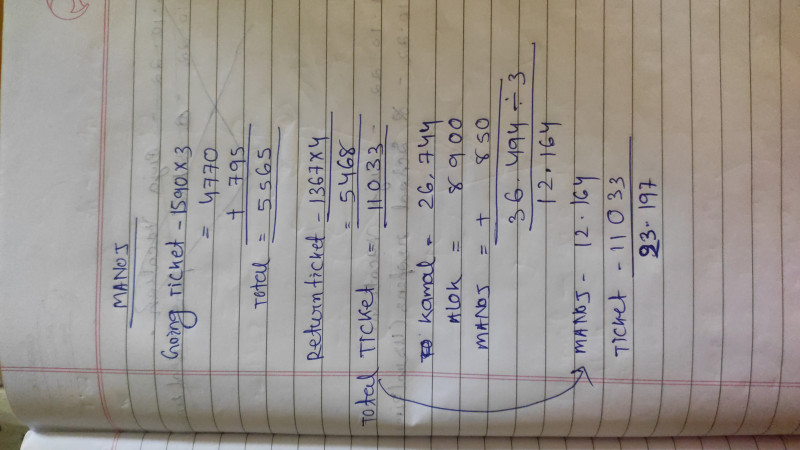 MANOJ
Going Ticket - 1590 x 3
= 4770
+ 795
Total = 5565
Return ticket - 1367 x 4
= 5468
Total Ticket = 11033
Kamal = 26,744
Alok = 8900
MANOJ = + 850
36.494 ÷ 3
12.164
MANOJ - 12.164
Ticket - 11033
23.197